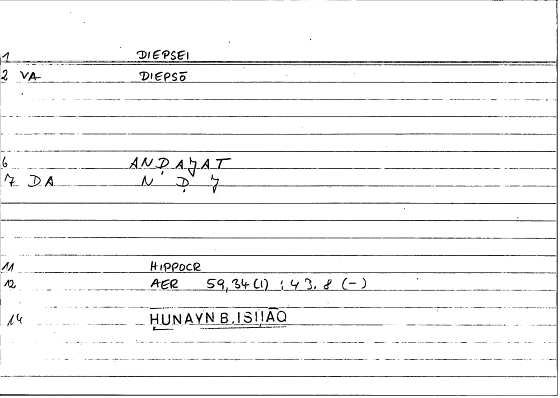 1 DIEPSEI
2 VA DIEPSŌ
6 ANḌAJAT
7 DA N Ḍ J
11 HIPPOCR
12 AER 59,34(1) : 43.8 (-)
14 HUNAYN B. ISḤĀQ